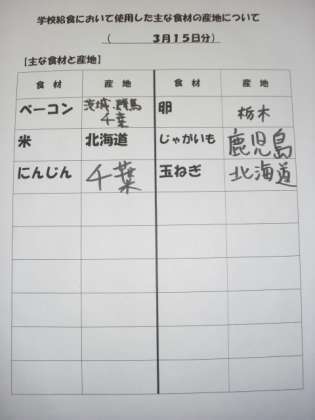 学校給食において使用した主な食材の産地について
（　　　３月１５日分）
【主な食材と産地】
食 材 産 地 食 材 産 地
ベーコン 茨城、群馬 千葉 卵 栃木
米 北海道 じゃがいも 鹿児島
にんじん 千葉 玉ねぎ 北海道